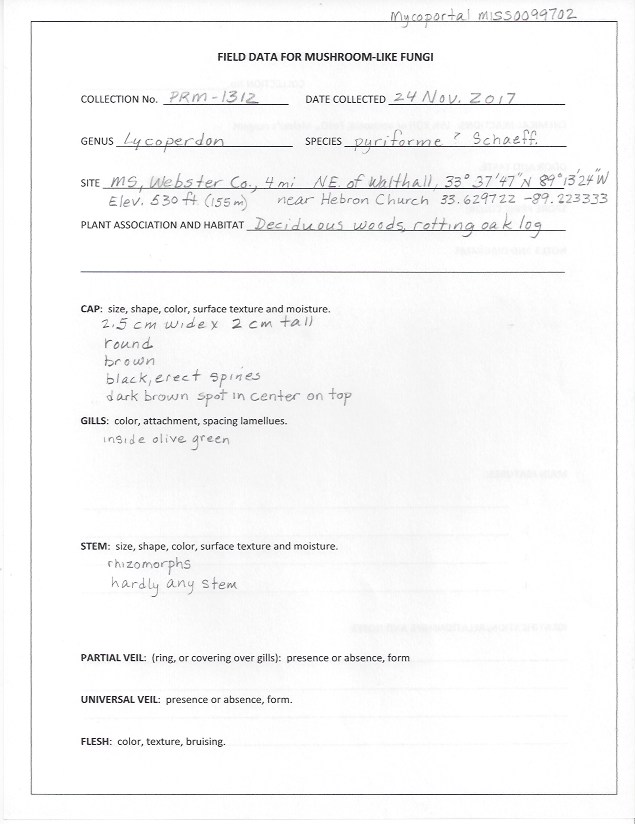 Mycoportal MISS0099702
FIELD DATA FOR MUSHROOM-LIKE FUNGI
COLLECTION No. PRM-1312 DATE COLLECTED 24 Nov. 2017
GENUS Lycoperdon SPECIES pyriforme ? Schaeff.
SITE MS, Webster Co., 4 mi NE. of Walthall, 33° 37'47"N 89°13'24"W
Elev. 530 ft (155m) near Hebron Church 33.629722 -89.223333
PLANT ASSOCIATION AND HABITAT Deciduous woods, rotting oak log
CAP: size, shape, color, surface texture and moisture.
2.5 cm wide x 2 cm tall
round
brown
black, erect spines
dark brown spot in center on top
GILLS: color, attachment, spacing lamellues.
inside olive green
STEM: size, shape, color, surface texture and moisture.
rhizomorphs
hardly any stem
PARTIAL VEIL: (ring, or covering over gills): presence or absence, form
UNIVERSAL VEIL: presence or absence, form.
FLESH: color, texture, bruising.